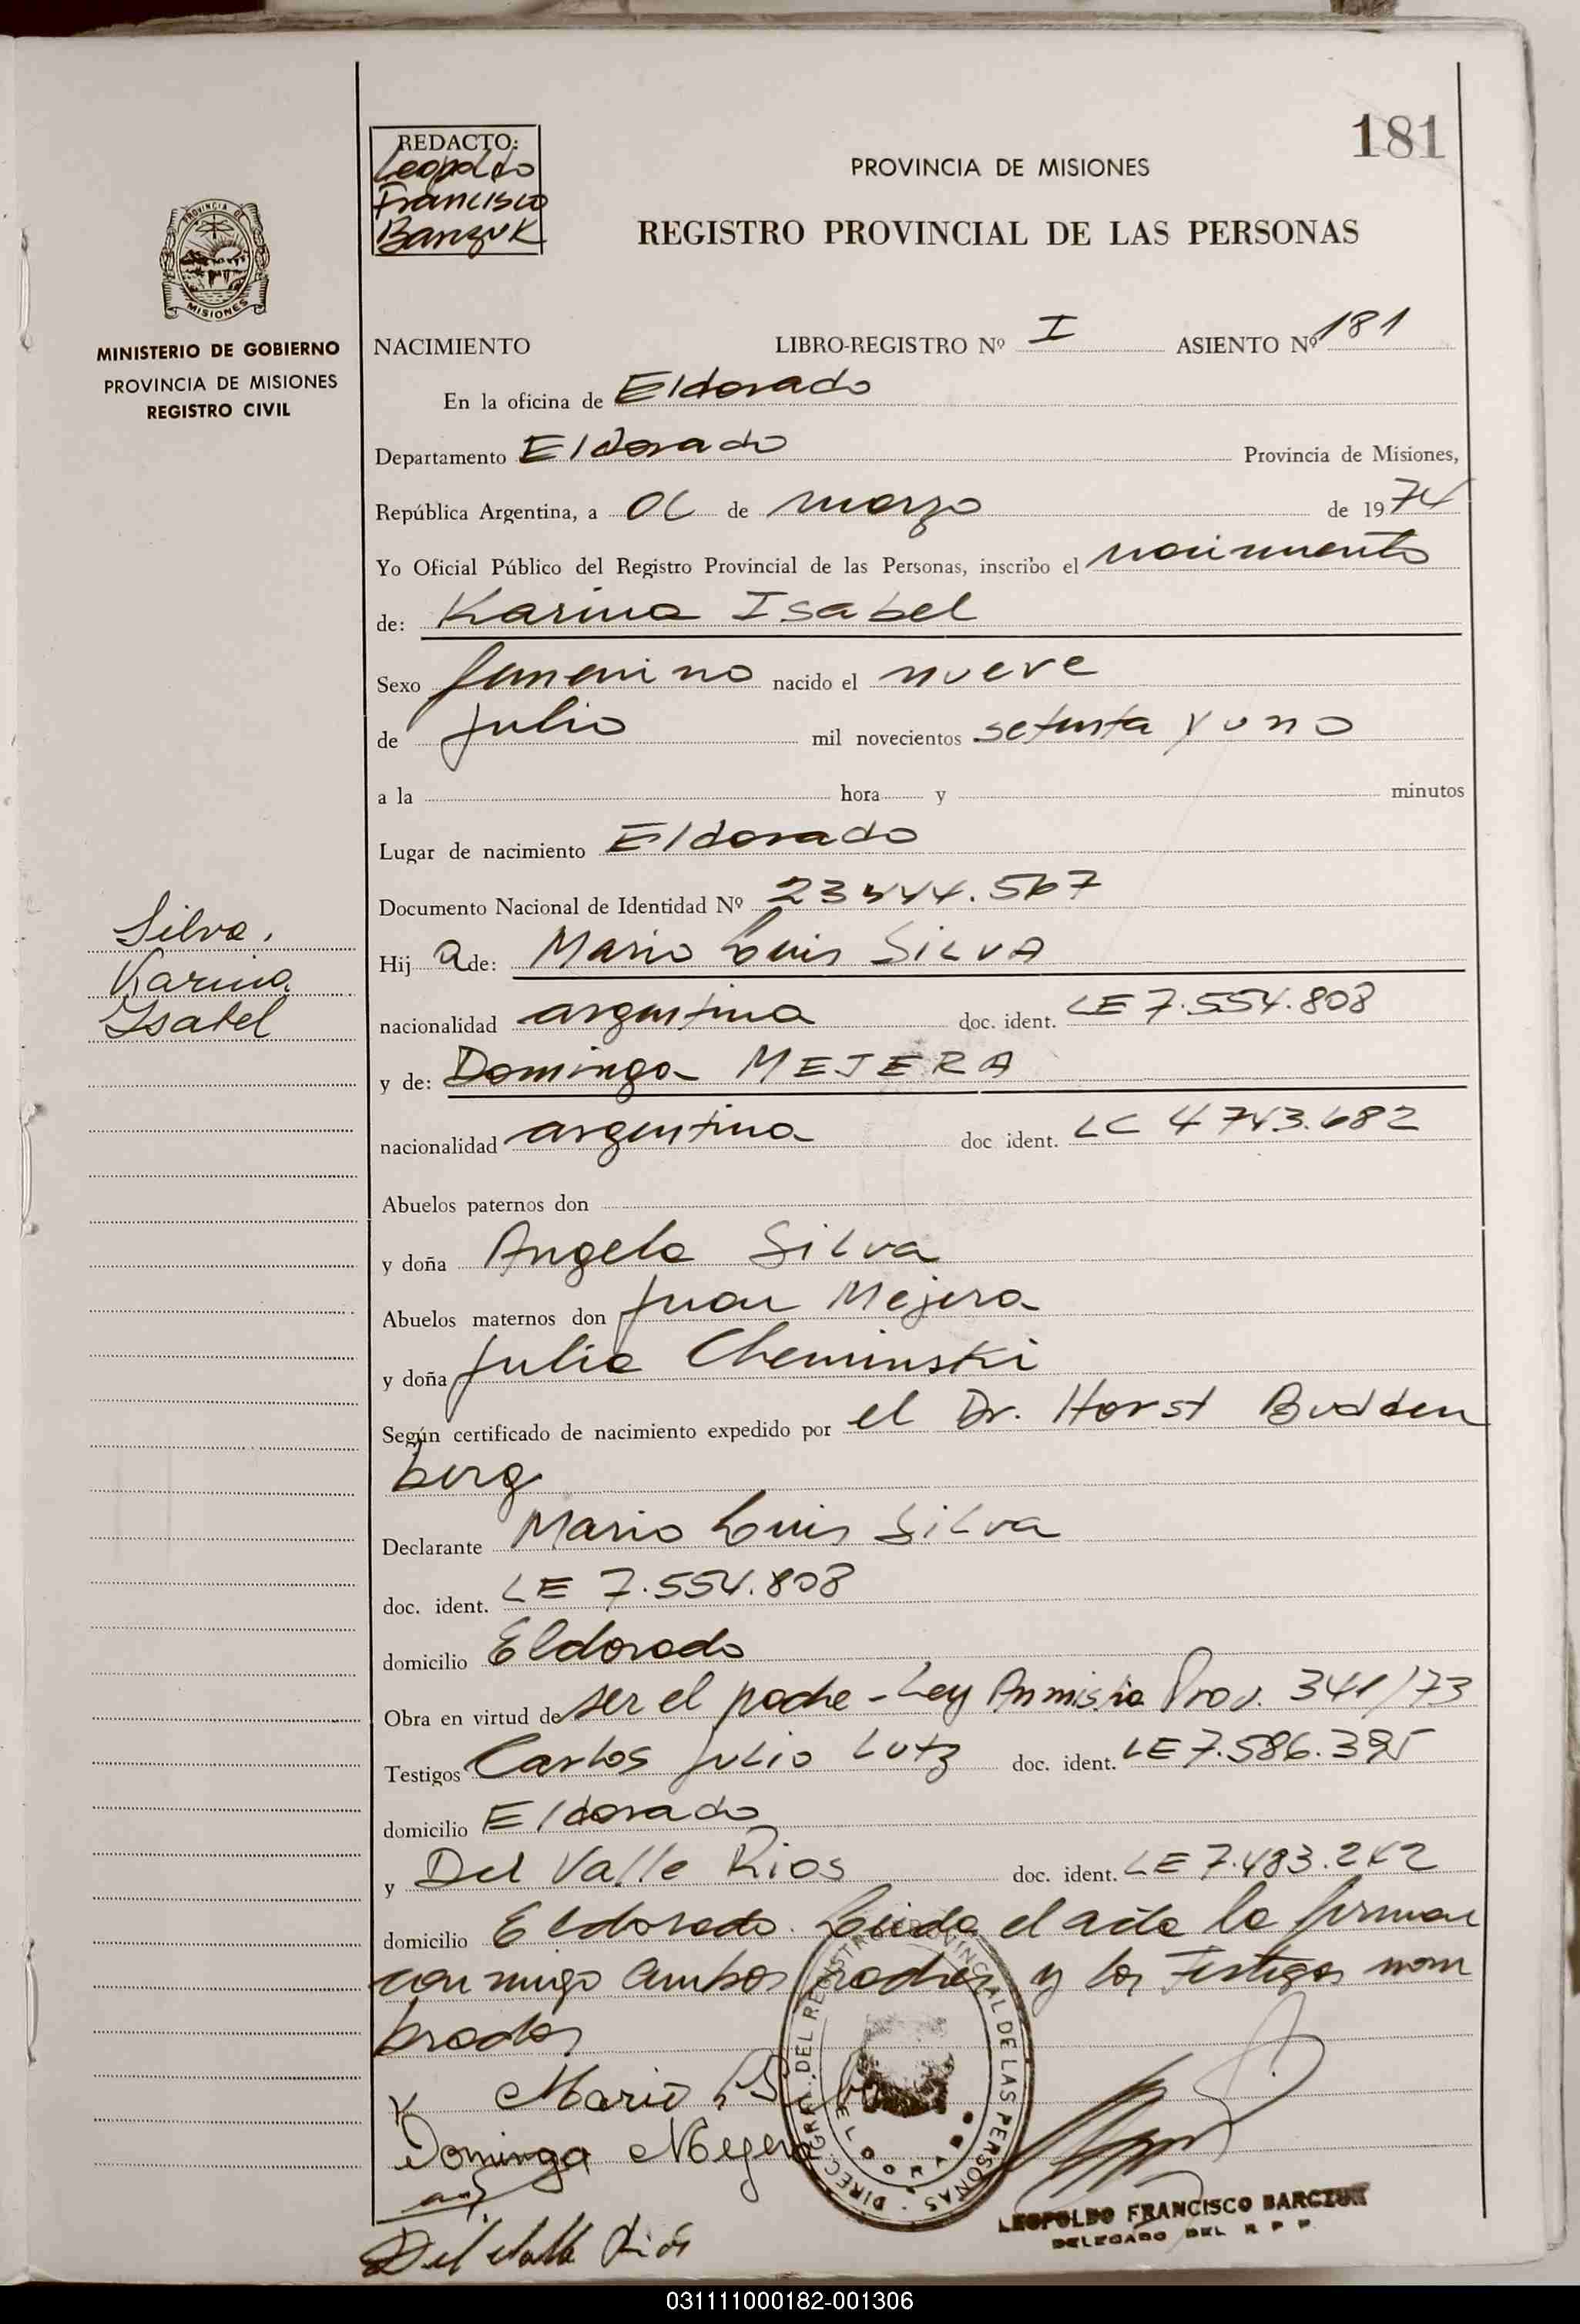 181
REDACTO:
Leopoldo
Francisco
Barczuk
PROVINCIA DE MISIONES
REGISTRO PROVINCIAL DE LAS PERSONAS
PROVINCIA DE
MISIONES
MINISTERIO DE GOBIERNO
PROVINCIA DE MISIONES
REGISTRO CIVIL
NACIMIENTO LIBRO-REGISTRO Nº I ASIENTO Nº 181
En la oficina de Eldorado
Departamento Eldorado Provincia de Misiones,
República Argentina, a de marzo de 1974
Yo Oficial Público del Registro Provincial de las Personas, inscribo el nacimiento
de: Karina Isabel
Sexo femenino nacido el nueve
de julio mil novecientos setenta y uno
a la hora y minutos
Lugar de nacimiento Eldorado
Documento Nacional de Identidad Nº
Silva,
Karina
Isabel
Hij a de: Mario Luis SILVA
nacionalidad argentina doc. ident. LE 7.554.808
y de: Dominga MEJERA
nacionalidad argentina doc ident. LC 4743.682
Abuelos paternos don
y doña Angela Silva
Abuelos maternos don Juan Mejera
y doña Julia Cheminski
Según certificado de nacimiento expedido por el Dr. Horst Budden
berg
Declarante Mario Luis Silva
doc. ident. LE 7.554.808
domicilio Eldorado
Obra en virtud de ser el padre - Ley Amnistia Prov. 341/73
Testigos Carlos Julio Lutz doc. ident. LE 7.586.395
domicilio Eldorado
y Del Valle Rios doc. ident. LE 7.483.242
domicilio Eldorado. Leida el acta la firman
conmigo ambos padres y los Testigos nom
brados
Mario L Silva
Dominga Mejera
Del Valle Rios
DIREC. GRAL. DEL REGISTRO PROVINCIAL DE LAS PERSONAS
ELDORADO
LEOPOLDO FRANCISCO BARCZUK
DELEGADO DEL R P P
031111000182-001306